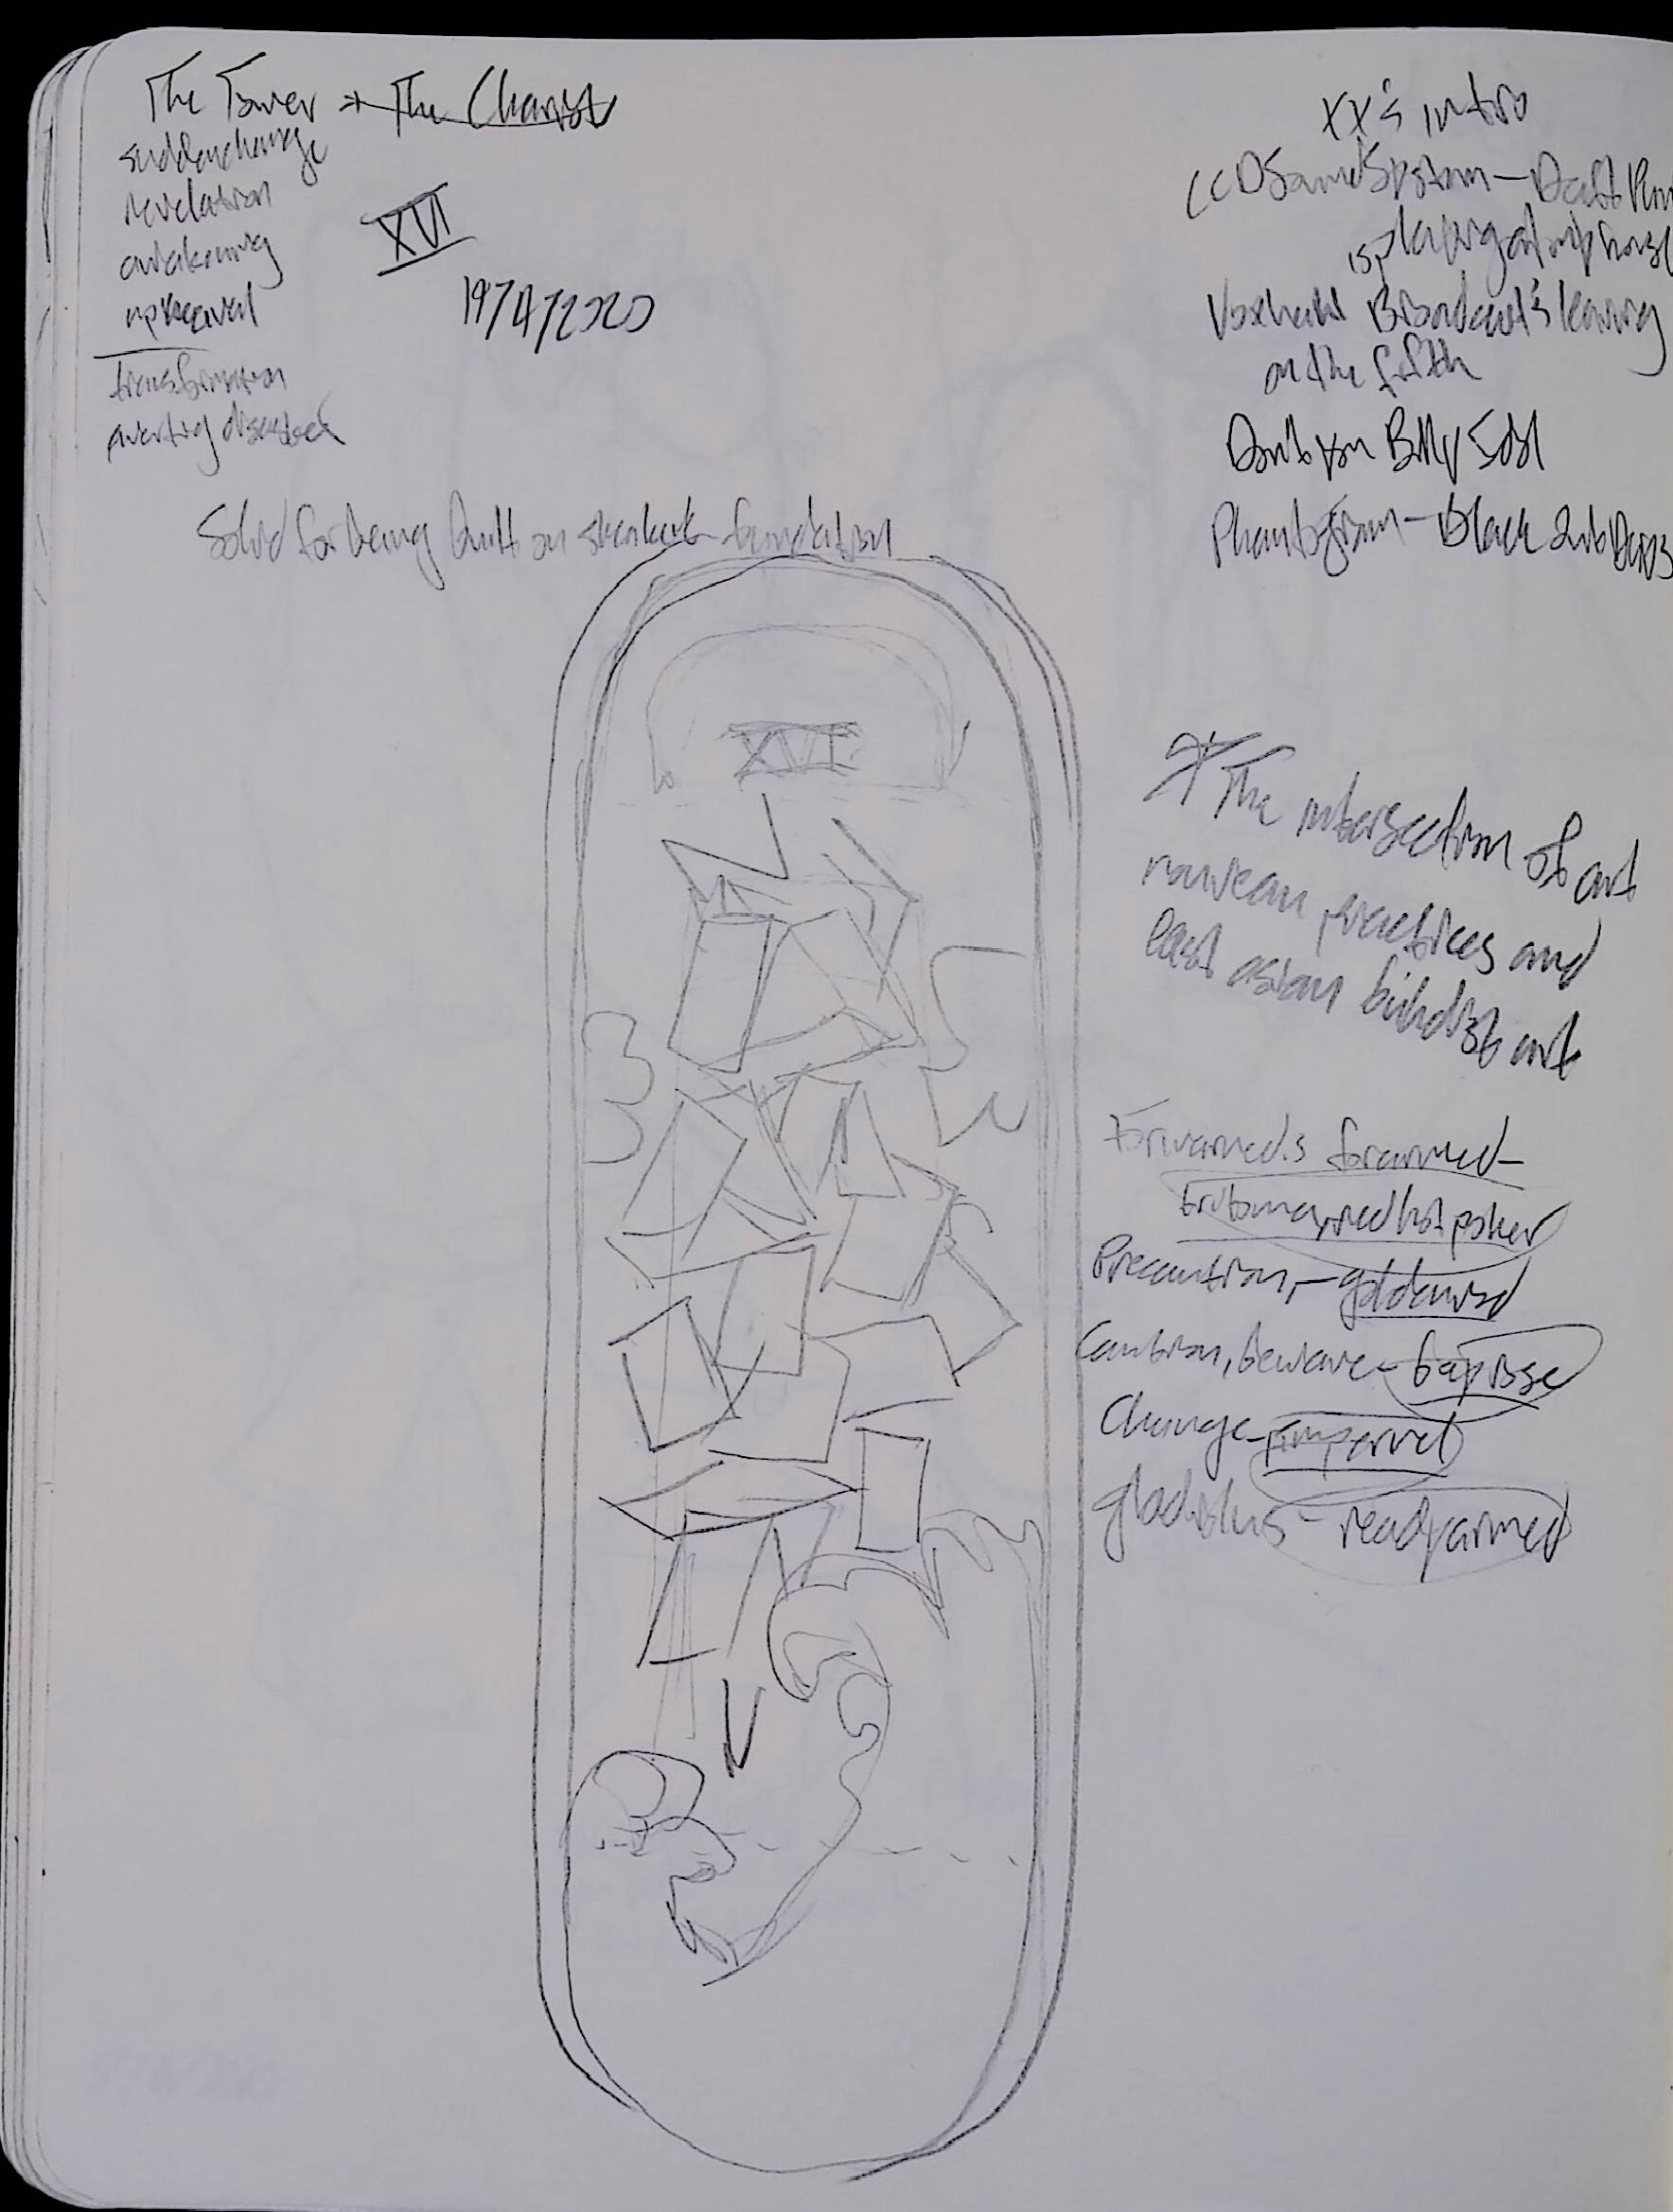 The Tower → The Chariot
sudden change
revelation
awakening
upheaval
transformation
averting disaster
XVI
19/4/2020
Solid for being built on foundation
XX's intro
LCD Soundsystem - Daft Pun
is playing at my house
Voxtrot Broadcast's leaving
on the fifth
Don't you Billy Idol
Phantogram - Black
XVI
* The intersection of art
nouveau practices and
east asian buddhist art
Forwarned is forarmed -
tritoma, red hot poker
Precaution, - goldenrod
Caution, beware -
Change - pimpernel
gladiolus - ready armed